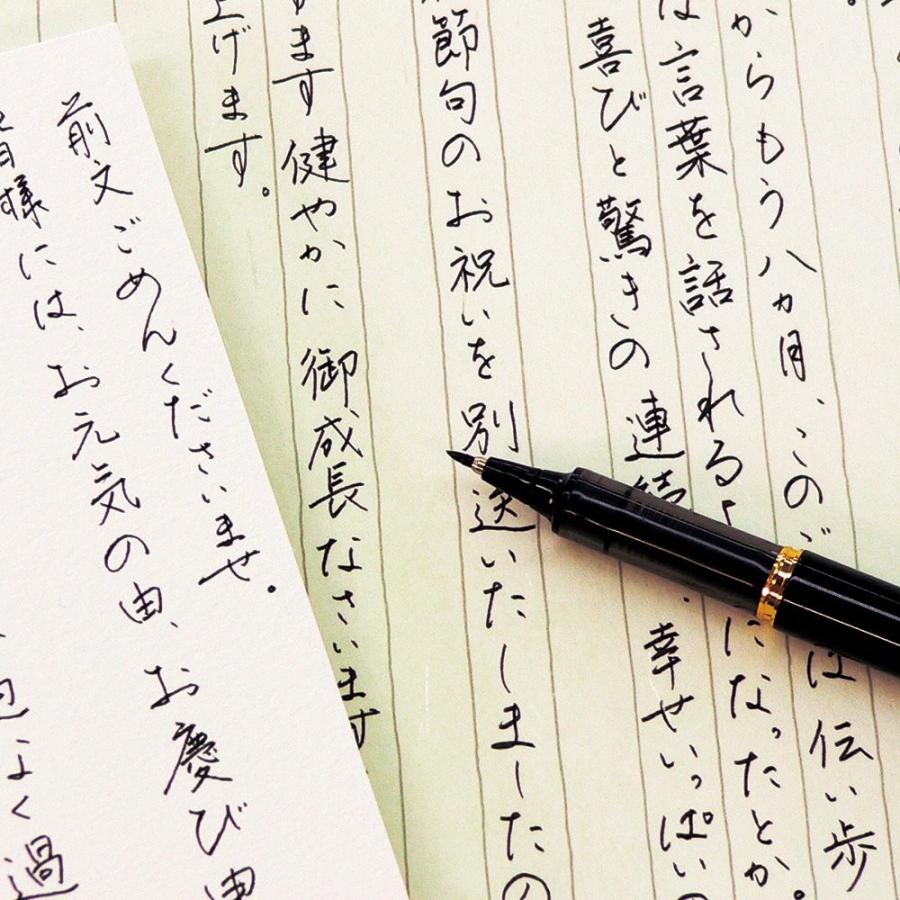 からもう八ヵ月、このご
は伝い歩
は言葉を話されるよ
になったとか。
喜びと驚きの連続
幸せいっぱいの
節句のお祝いを別送いたしましたの
ます健やかに御成長なさいます
上げます。
前文ごめんくださいませ。
皆様には、お元気の由、お慶び申
よく過